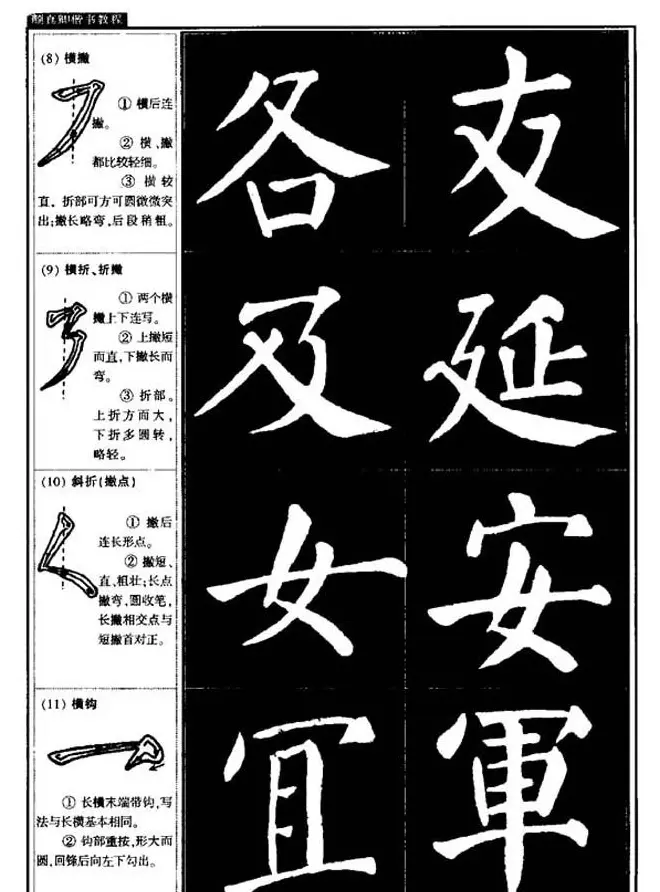 颜真卿楷书教程
(8) 横撇
① 横后连
撇。
② 横、撇
都比较轻细。
③ 横较
直，折部可方可圆微微突
出;撇长略弯,后段稍粗。
各
友
(9) 横折、折撇
① 两个横
撇上下连写。
② 上撇短
而直,下撇长而
弯。
③ 折部。
上折方而大,
下折多圆转,
略轻。
及
延
(10) 斜折(撇点)
① 撇后
连长形点。
② 撇短、
直,粗壮;长点
撇弯,圆收笔,
长撇相交点与
短撇首对正。
女
安
(11) 横钩
① 长横末端带钩,写
法与长横基本相同。
② 钩部重按,形大而
圆,回锋后向左下勾出。
宜
軍